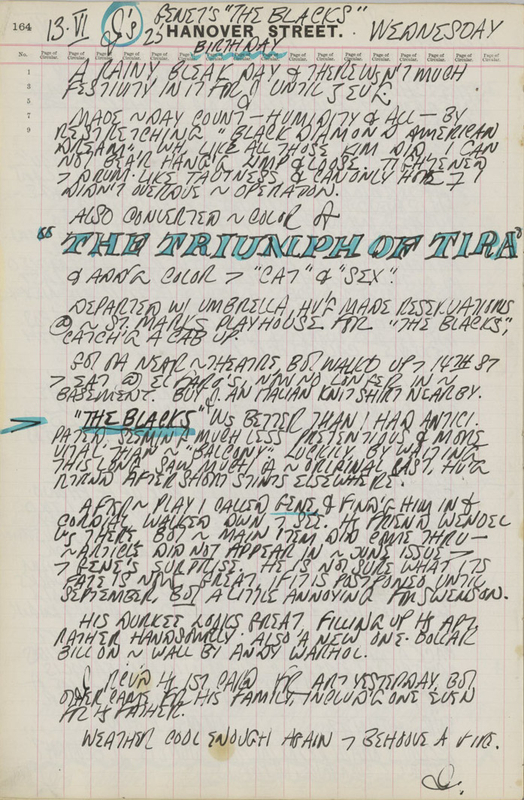 164 13·VI J's 25 GENET'S "THE BLACKS" WEDNESDAY
HANOVER STREET.
BIRTHDAY
No. Page of Circular. Page of Circular. Page of Circular. Page of Circular. Page of Circular. Page of Circular. Page of Circular. Page of Circular. Page of Circular. Page of Circular. Page of Circular.
1
3
5
7
9
A RAINY BLEAK DAY & THERE WSN'T MUCH
FESTIVITY IN IT FOR J UNTIL EVE
MADE ~ DAY COUNT – HUMIDITY & ALL – BY
RESTRETCHING "BLACK DIAMOND AMERICAN
DREAM" WH, LIKE ALL THOSE KIM DID, I CAN
NOT BEAR HANG'G LIMP & LOOSE. TIGHTENED
> DRUM-LIKE TAUTNESS & CAN ONLY HOPE I
DIDN'T OVERDUE ~ OPERATON.
ALSO CONVERTED ~ COLOR OF
"THE TRIUMPH OF TIRA"
& ADD'G COLOR > "CAT" & "SEX".
DEPARTED W/ UMBRELLA, HV'G MADE RESERVATIONS
@ ~ ST. MARK'S PLAYHOUSE FOR "THE BLACKS",
CATCH'G A CAB UP.
GOT OFF NEAR ~ THEATRE, BUT WALKD UP > 14TH ST
> EAT @ NOW NO LONGER IN ~
BASEMENT. BUY'G AN ITALIAN KNIT SHIRT NEARBY.
> "THE BLACKS" WS BETTER THAN I HAD ANTICI-
PATED, SEEMING MUCH LESS PRETENTIOUS & MORE
VITAL THAN ~ "BALCONY". LUCKILY, BY WAITING
THIS LONG, SAW MUCH OF ~ ORIGINAL CAST, HV'G
RTRND AFTER SHORT STINTS ELSEWHERE.
AFTER ~ PLAY I CALLED GENE & FIND'G HIM IN &
CORDIAL WALKED DWN > SEE. HS FRIEND WENDEL
WS THERE BUT ~ MAIN ITEM DID COME THRU –
~ ARTICLE DID NOT APPEAR IN ~ JUNE ISSUE >
> GENE'S SURPRISE. HE IS NOT SURE WHAT ITS
FATE IS NOW. GREAT, IF IT IS POSTPONED UNTIL
SEPTEMBER, BUT A LITTLE ANNOYING FM SWENSON.
HIS DURKEE LOOKS GREAT FILLING UP HS APT.
RATHER HANDSOMELY. ALSO A NEW ONE-DOLLAR
BILL ON ~ WALL BY ANDY WARHOL.
J RCV'D HS 1ST CARD FR ART YESTERDAY, BUT
OTHER CAME FR HIS FAMILY, INCLUD'G ONE EVEN
FR HS FATHER.
WEATHER COOL ENOUGH AGAIN > BEHOOVE A FIRE.